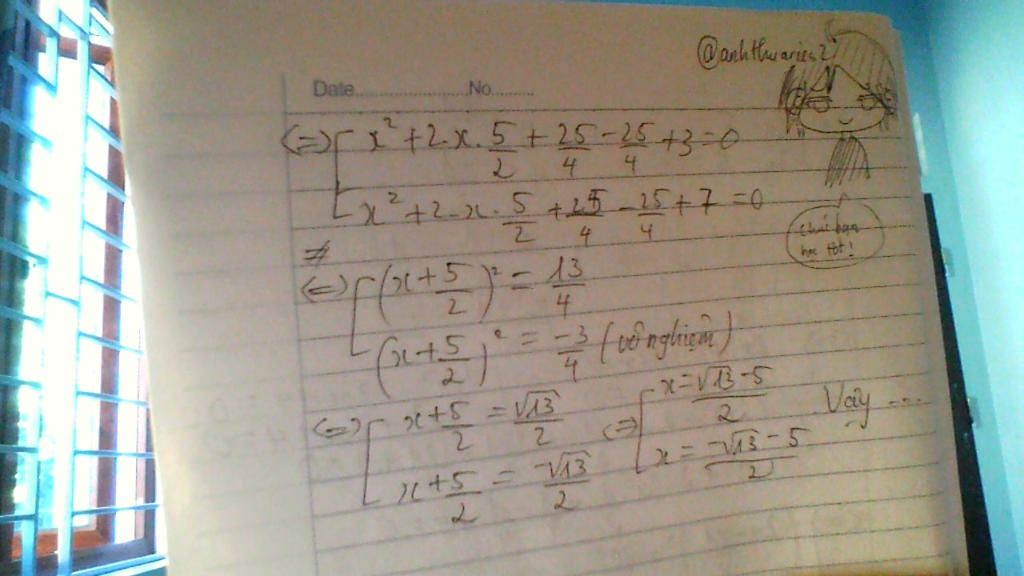 @anhthuaries2
Date No
(=) [ x² + 2.x. 5/2 + 25/4 - 25/4 + 3 = 0
x² + 2.x. 5/2 + 25/4 - 25/4 + 7 = 0
chúc bạn
học tốt!
≠
(=) [ (x + 5/2)² = 13/4
(x + 5/2)² = -3/4 (vô nghiệm)
(=) [ x + 5/2 = √13/2 (=) [ x = (√13 - 5)/2 Vậy ...
x + 5/2 = -√13/2 x = (-√13 - 5)/2